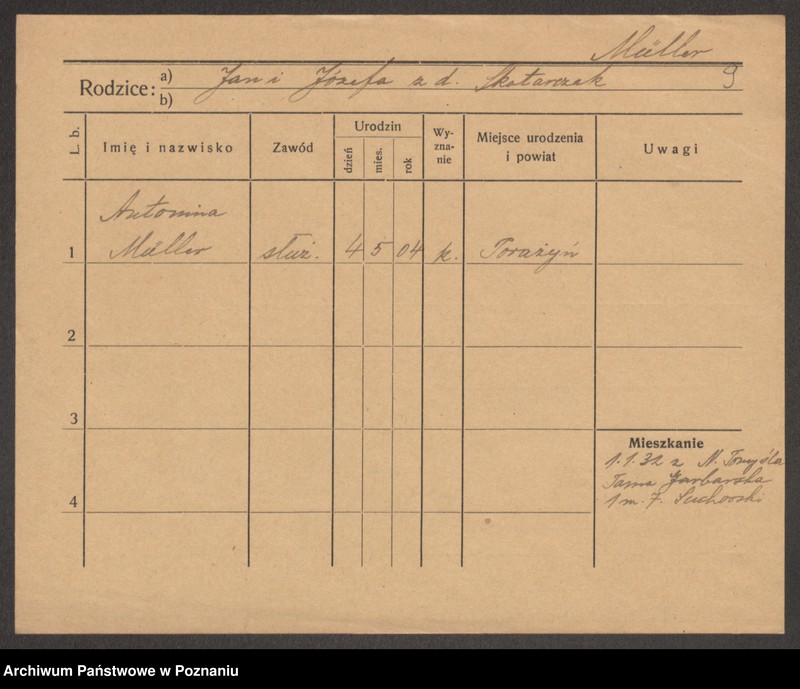 Müller
Rodzice: a) Jan i Józefa z d. Skotarczak 9
b)
L. b. Imię i nazwisko Zawód Urodzin dzień mies. rok Wy-zna-nie Miejsce urodzenia i powiat Uwagi
Antonina
1 Müller służ. 4 5 04 k. Porażyń
2
3
Mieszkanie
1.1.32 z N. Tomyśla
Tama Garbarska
4
1 m. 7. Suchorski
Archiwum Państwowe w Poznaniu